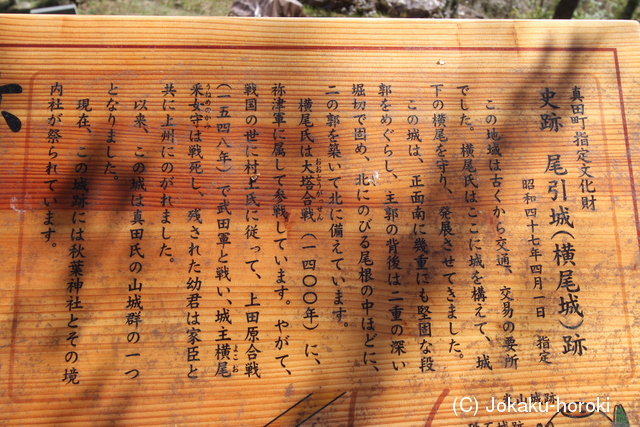 真田町指定文化財
史跡 尾引城(横尾城)跡
昭和四十七年四月一日 指定
この地域は古くから交通、交易の要所
でした。横尾氏はここに城を構えて、城
下の横尾を守り、発展させてきました。
この城は、正面南に幾重にも堅固な段
郭をめぐらし、主郭の背後は二重の深い
堀切で固め、北にのびる尾根の中ほどに、
二の郭を築いて北に備えています。
横尾氏は大塔合戦(一四〇〇年)に、
おおとうがっせん
祢津軍に属して参戦しています。やがて、
戦国の世に村上氏に従って、上田原合戦
(一五四八年)で武田軍と戦い、城主横尾
よこお
采女守は戦死し、残された幼君は家臣と
うねめのかみ
共に上州にのがれました。
以来、この城は真田氏の山城群の一つ
となりました。
現在、この城跡には秋葉神社とその境
内社が祭られています。
(C) Jokaku-horoki